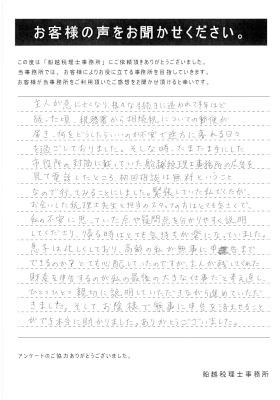 お客様の声をお聞かせください。
この度は「船越税理士事務所」にご依頼頂きありがとうございました。
当事務所では、お客様によりお役に立てる事務所を目指していきます。
お客様が当事務所をご利用頂いたご感想をお聞かせ頂けると幸いです。
主人が急に亡くなり、様々な手続きに追われて半年ほど
経った頃、税務署から相続税についての郵便が
届き、何をどうしたらいいのか不安で途方に暮れる日々
を過ごしておりました。そんな時、たまたま手にした
市役所の封筒に載っていた船越税理士事務所の広告を
見て電話したところ、初回相談は無料ということ
なので行ってみることにしました。緊張していた私でしたが、
お会いした税理士先生と担当のスタッフの方はとても気さくで、
私の不安に思っていた点や疑問点を分かりやすく説明
してくださり、帰る時はとても気持ちが楽になっていました。
息子は忙しくしており、高齢の私が無事に申告まで
できるのか、とても心配していたのですが、主人が残してくれた
財産を申告するのが私の最後の大きな仕事だと考え直し、
ひとつひとつ親切に説明していただきながら進めていただ
きました。そしてお陰様で無事に申告を済ませることが
でき本当に助かりました。ありがとうございました。
アンケートのご協力ありがとうございました。
船越税理士事務所